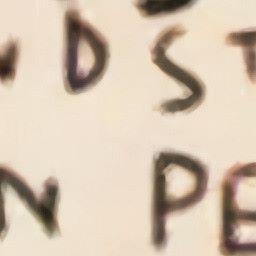 ND ST
N PE